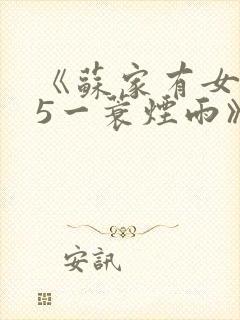 《蘇家有女
5一蓑煙雨》
安訊